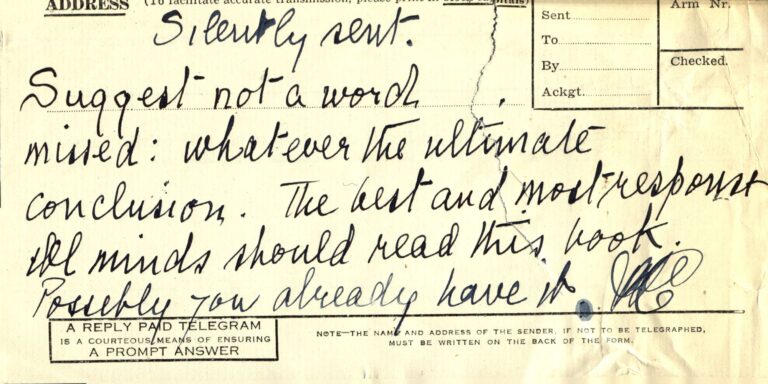 ADDRESS (To facilitate accurate transmission, please print in block capitals)
Sent
To
By
Ackgt.
Arm Nr.
Checked.
Silently sent.
Suggest not a word
missed: whatever the ultimate
conclusion. The best and most respons
ible minds should read this book.
Possibly you already have it.
A REPLY PAID TELEGRAM
IS A COURTEOUS MEANS OF ENSURING
A PROMPT ANSWER
NOTE—THE NAME AND ADDRESS OF THE SENDER, IF NOT TO BE TELEGRAPHED,
MUST BE WRITTEN ON THE BACK OF THE FORM.